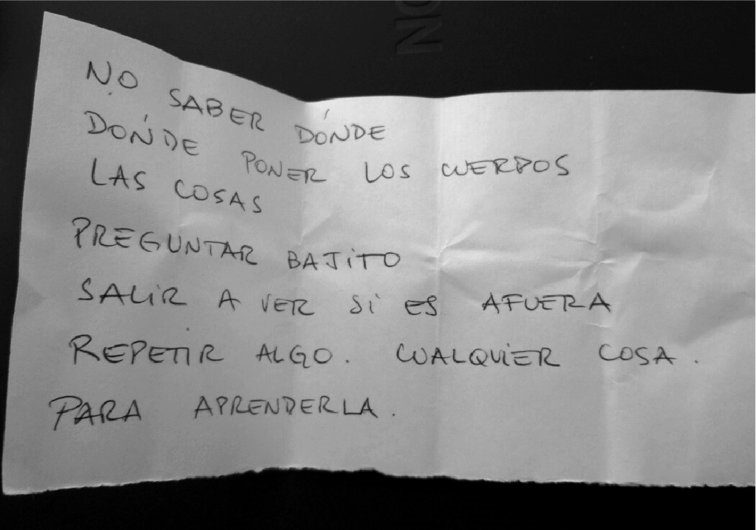 NO
NO SABER DÓNDE
DÓNDE PONER LOS CUERPOS
LAS COSAS
PREGUNTAR BAJITO
SALIR A VER SI ES AFUERA
REPETIR ALGO. CUALQUIER COSA.
PARA APRENDERLA.